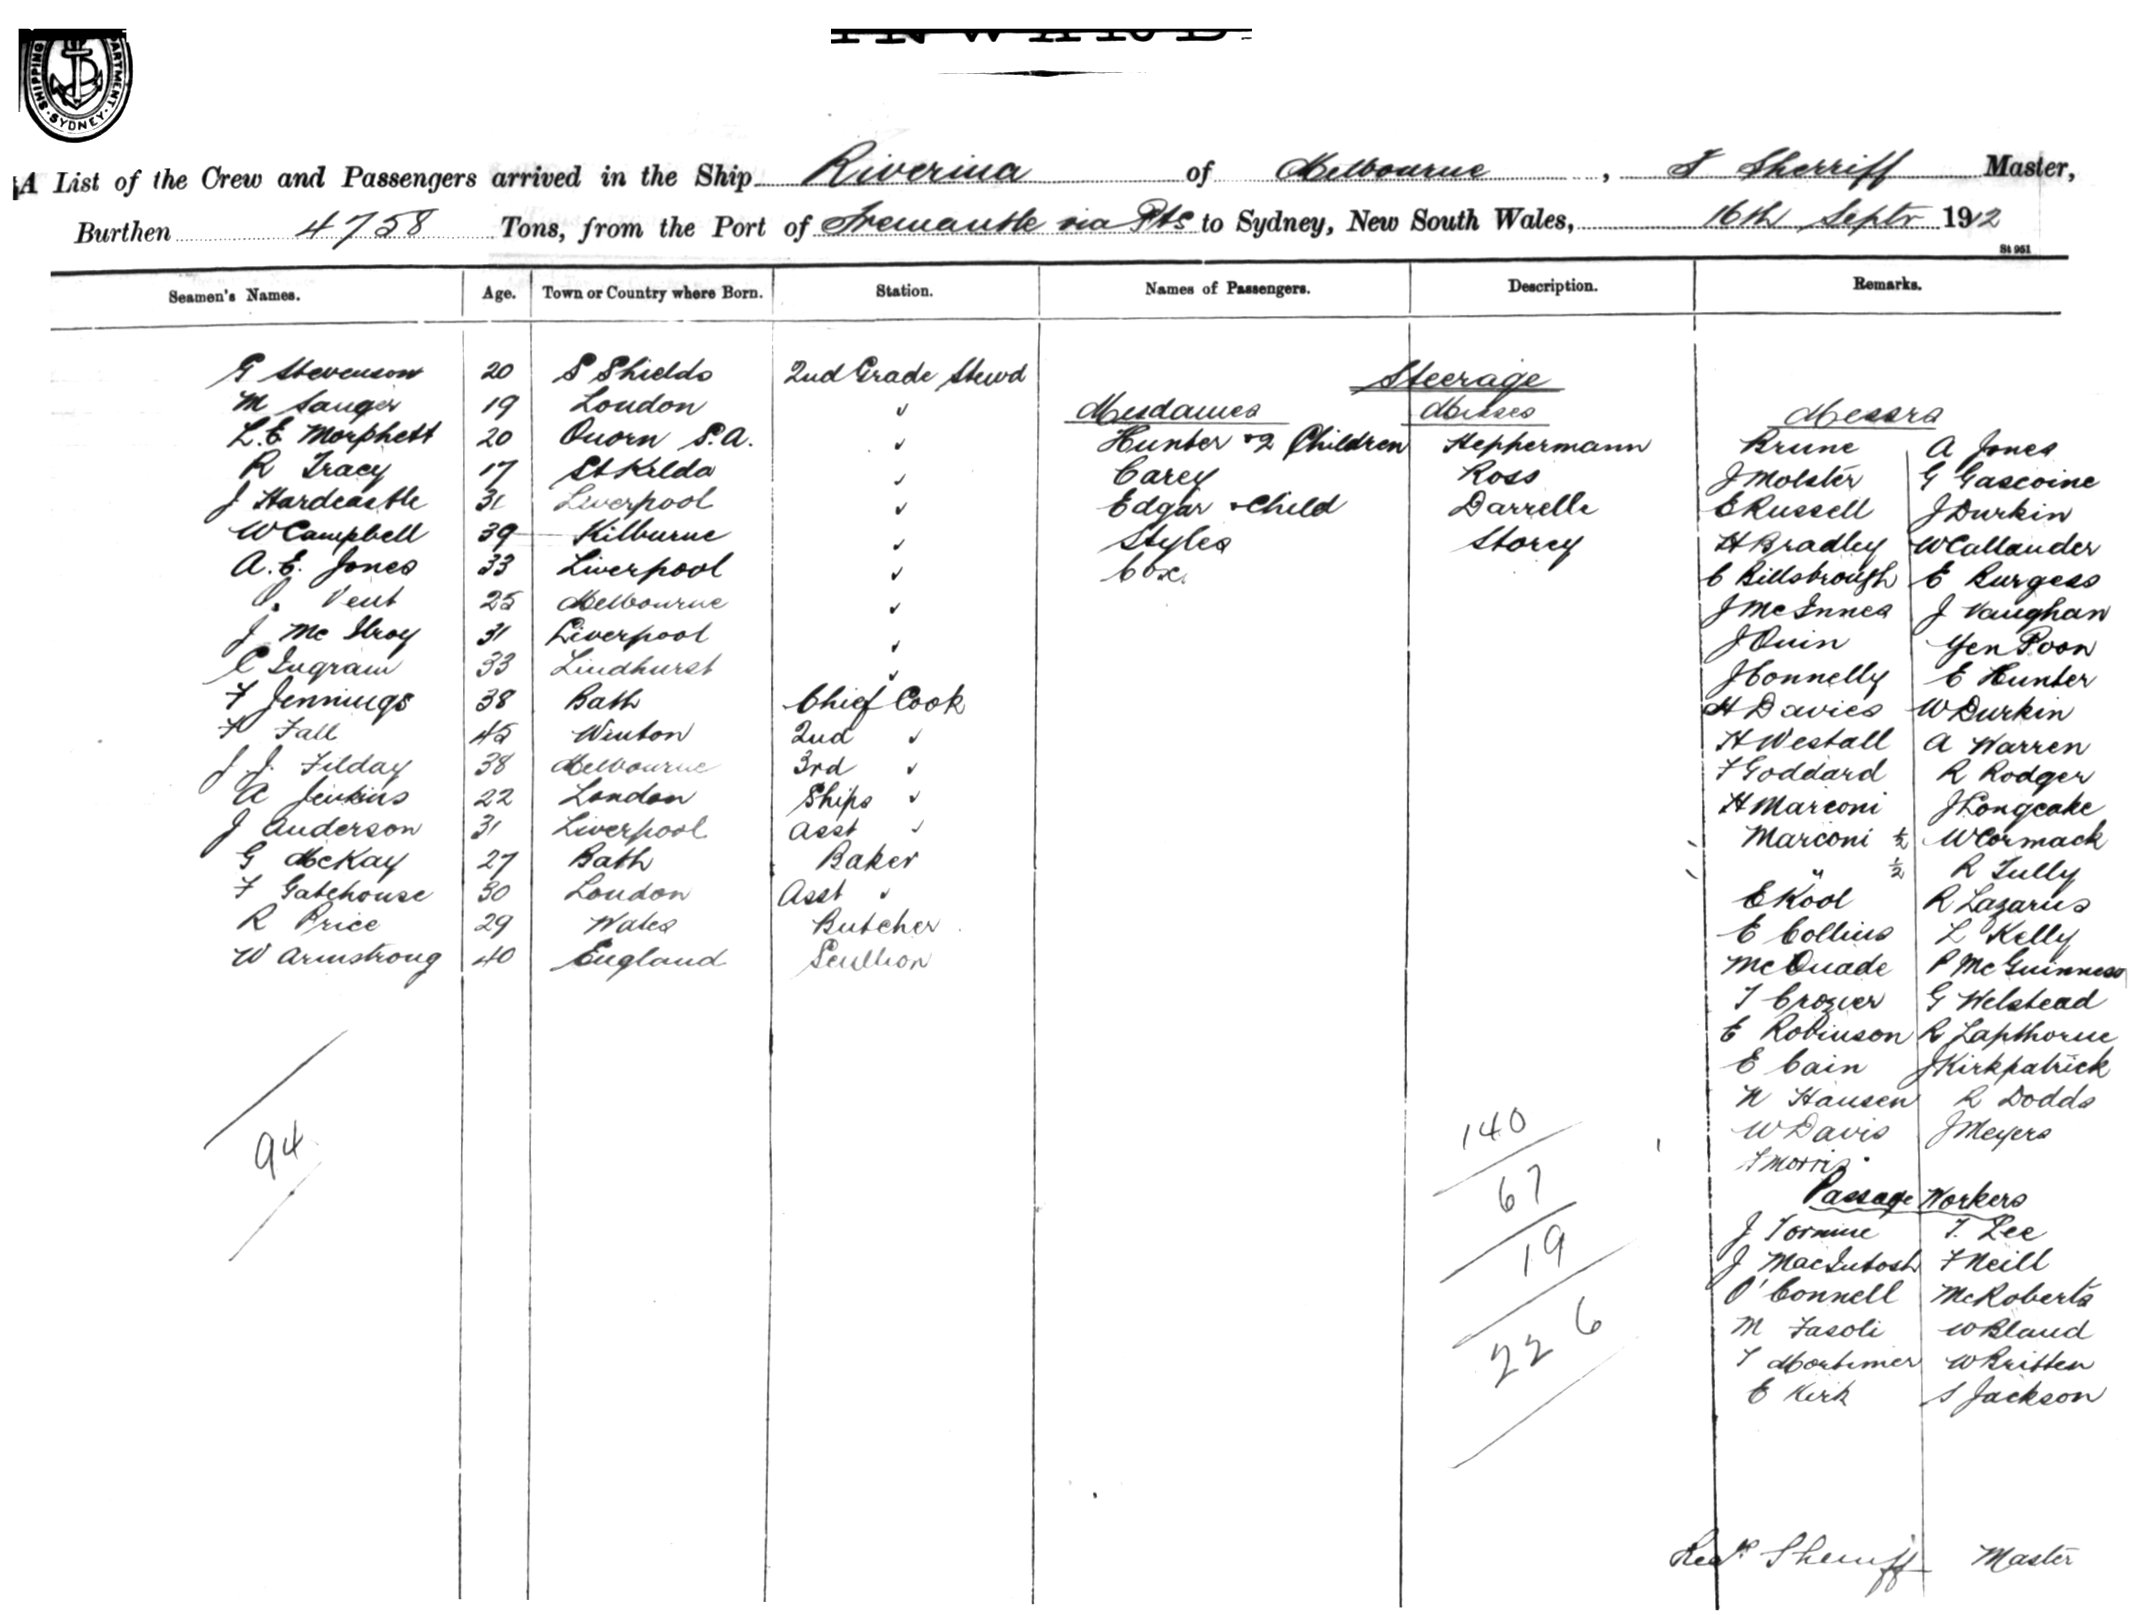 SHIPPING DEPARTMENT. SYDNEY.
INWARD
A List of the Crew and Passengers arrived in the Ship Riverina of Melbourne, T Sherriff Master,
Burthen 4758 Tons, from the Port of Fremantle via Pts to Sydney, New South Wales, 16th Septr 1912
St 951
Seamen's Names. Age. Town or Country where Born. Station. Names of Passengers. Description. Remarks.
Steerage
G Stevenson 20 S Shields 2nd Grade Stewd
M Sauger 19 London ✓ Mesdames Misses Messrs
L.E Morphett 20 Quorn S.A. ✓ Hunter + 2 Children Heppermann Brune A Jones
R Tracy 17 St Kilda ✓ Carey Ross J Molster G Gascoine
J Hardcastle 31 Liverpool ✓ Edgar + Child Darrelle E Russell J Durkin
W Campbell 39 Kilburne ✓ Styles Storey H Bradley W Callander
A. E. Jones 33 Liverpool ✓ Cox. C Billsbrough E Burgess
Vent 25 Melbourne ✓ J McInnes J Vaughan
J McIlroy 31 Liverpool ✓ J Quin Yen Poon
C Ingram 33 Lindhurst ✓ J Connelly E Hunter
F Jennings 38 Bath Chief Cook H Davies W Durkin
F Fall 45 Winton 2nd ✓ H Westall A Warren
J. J. Filday 38 Melbourne 3rd ✓ F Goddard R Rodger
A Jenkins 22 London Ships ✓ H Marconi J Longcake
J Anderson 31 Liverpool Asst ✓ Marconi ½ W Cormack
G McKay 27 Bath Baker " ½ R Tully
F Gatehouse 30 London Asst ✓ E Kool R Lazarus
R Price 29 Wales Butcher E Collins L Kelly
W Armstrong 40 England Scullion McQuade P McGuinness
T Crozier G Welstead
E Robinson R Lapthorne
E Cain J Kirkpatrick
N Hansen R Dodds
W Davis J Meyers
T Morris
Passage Workers
J Tormine T. Lee
J MacIntosh F Neill
O'Connell McRoberts
M Fasoli W Bland
T Mortimer W Britten
E Kirk S Jackson
94
140
67
19
226
Sherriff Master